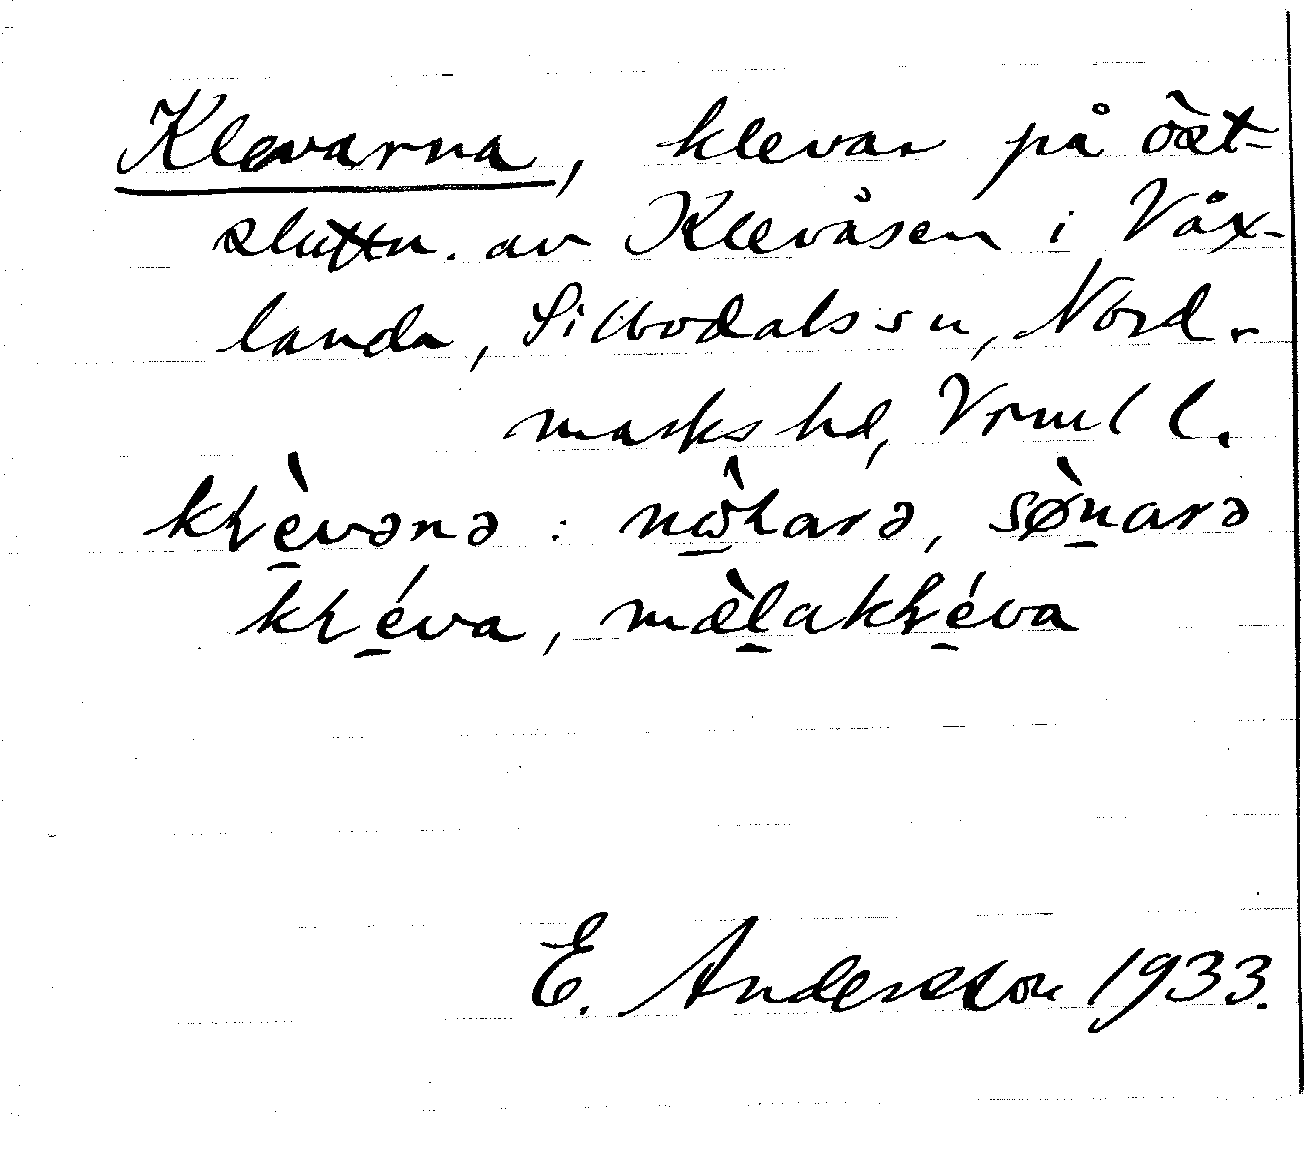 Klevarna, klevar på öst-
sluttn. av Klevåsen i Våx-
landa, Sillbodals sn, Nord-
marks hd, Vrml l.
kɽè̠vəɴə : nò̠ɽarə, sø̀n̠arə
kɽé̠va, mæ̀l̠akɽé̠va
E. Andersson 1933.